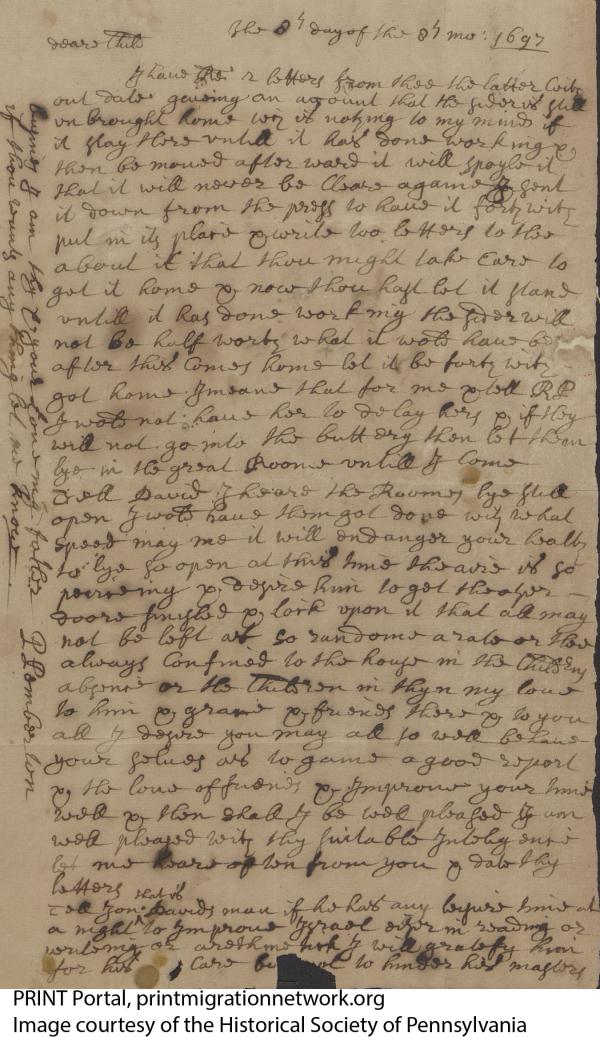 The 8th day of the 8th mo: 1697
deare Child
I have the 2 letters from thee the latter with
out date giveing an account that the sider is still
un brought home wch is nothing to my mind if
it stay there untill it has done working &
then be moved after ward it will spoyle it
that it will never be Cleare againe I sent
it down from the press to have it forthwith
put in its place & write two letters to thee
about it that thou might take Care to
get it home & now thou hast let it stand
untill it has done working the sider will
not be half worth what it wold have be
after this Comes home let it be forthwith
got home I meane that for me & tell RP
I wold not have her to delay hers & if they
will not go into the buttery then let them
lye in the great Roome untill I Come
Tell David I heare the Roomes lye still
open I wold have them got done with what
speed may me it will endanger your health
to lye so open at this time the aire is so
peirceing & desire him to get the other
doore finished & lock upon it that all may
not be left at so randome a rate or thee
always Confined to the house in the Childrens
absence or the Children in thyn my love
to him & grame & friends there & to you
all I desire you may all so well behave
your selves as to gaine a good report
& the love of friends & Improve your time
well & then shall I be well pleased I am
well pleased with thy suitable Inteligence
let me heare often from you & date thy
letters
Tell Jon: that is Davids man if he has any leasure time at
a night to Improve Israel either in reading or
writeing or arethmetick I will gratefy him
for his Care but not to hinder his masters
buyines I am thy & your lovein father P Pemberton
if thou wants any thing let me know
PRINT Portal, printmigrationnetwork.org
Image courtesy of the Historical Society of Pennsylvania